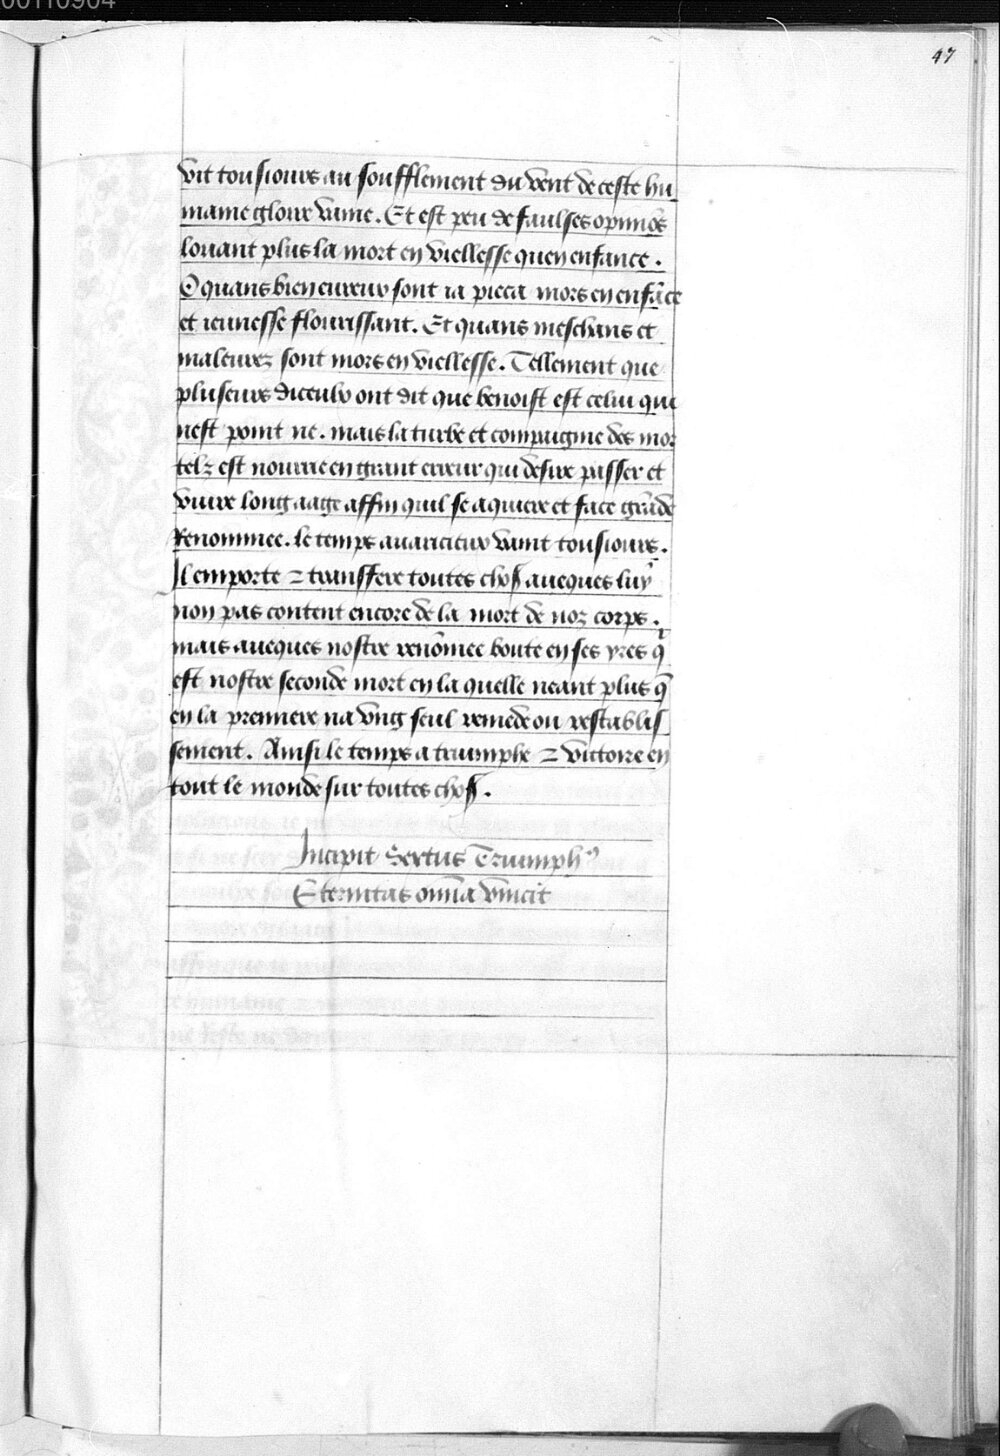 00110904
47
vit tousiours au soufflement du vent de ceste hu
maine gloire vaine. Et est peu de faulses opiniõs
louant plus la mort en viellesse quen enfance.
O quans bien eureux sont ia pieca mors en enfãce
et ieunesse flourissant. Et quans meschans et
maleurez sont mors en viellesse. Tellement que
pluseurs diceulx ont dit que benoist est celui qui
nest point ne. mais la turbe et compaignie des mor
telz est nourrie en grant erreur qui desire passer et
viure long aage affin quil se aquiere et face grãde
Renommee. le temps auaricieux vaint tousiours.
Il emporte ⁊ transffere toutes choses auecques luy
non pas content encore de la mort de noz corps.
mais auecques nostre renõmee boute en ses yres q̃
est nostre seconde mort en la quelle neant plus q̃
en la premiere na vng seul remede ou restablis
sement. Ainsi le temps a triumphe ⁊ victoire en
tout le monde sur toutes choses.
Incipit Sextus Triumphꝰ
Eternitas oĩa vincit